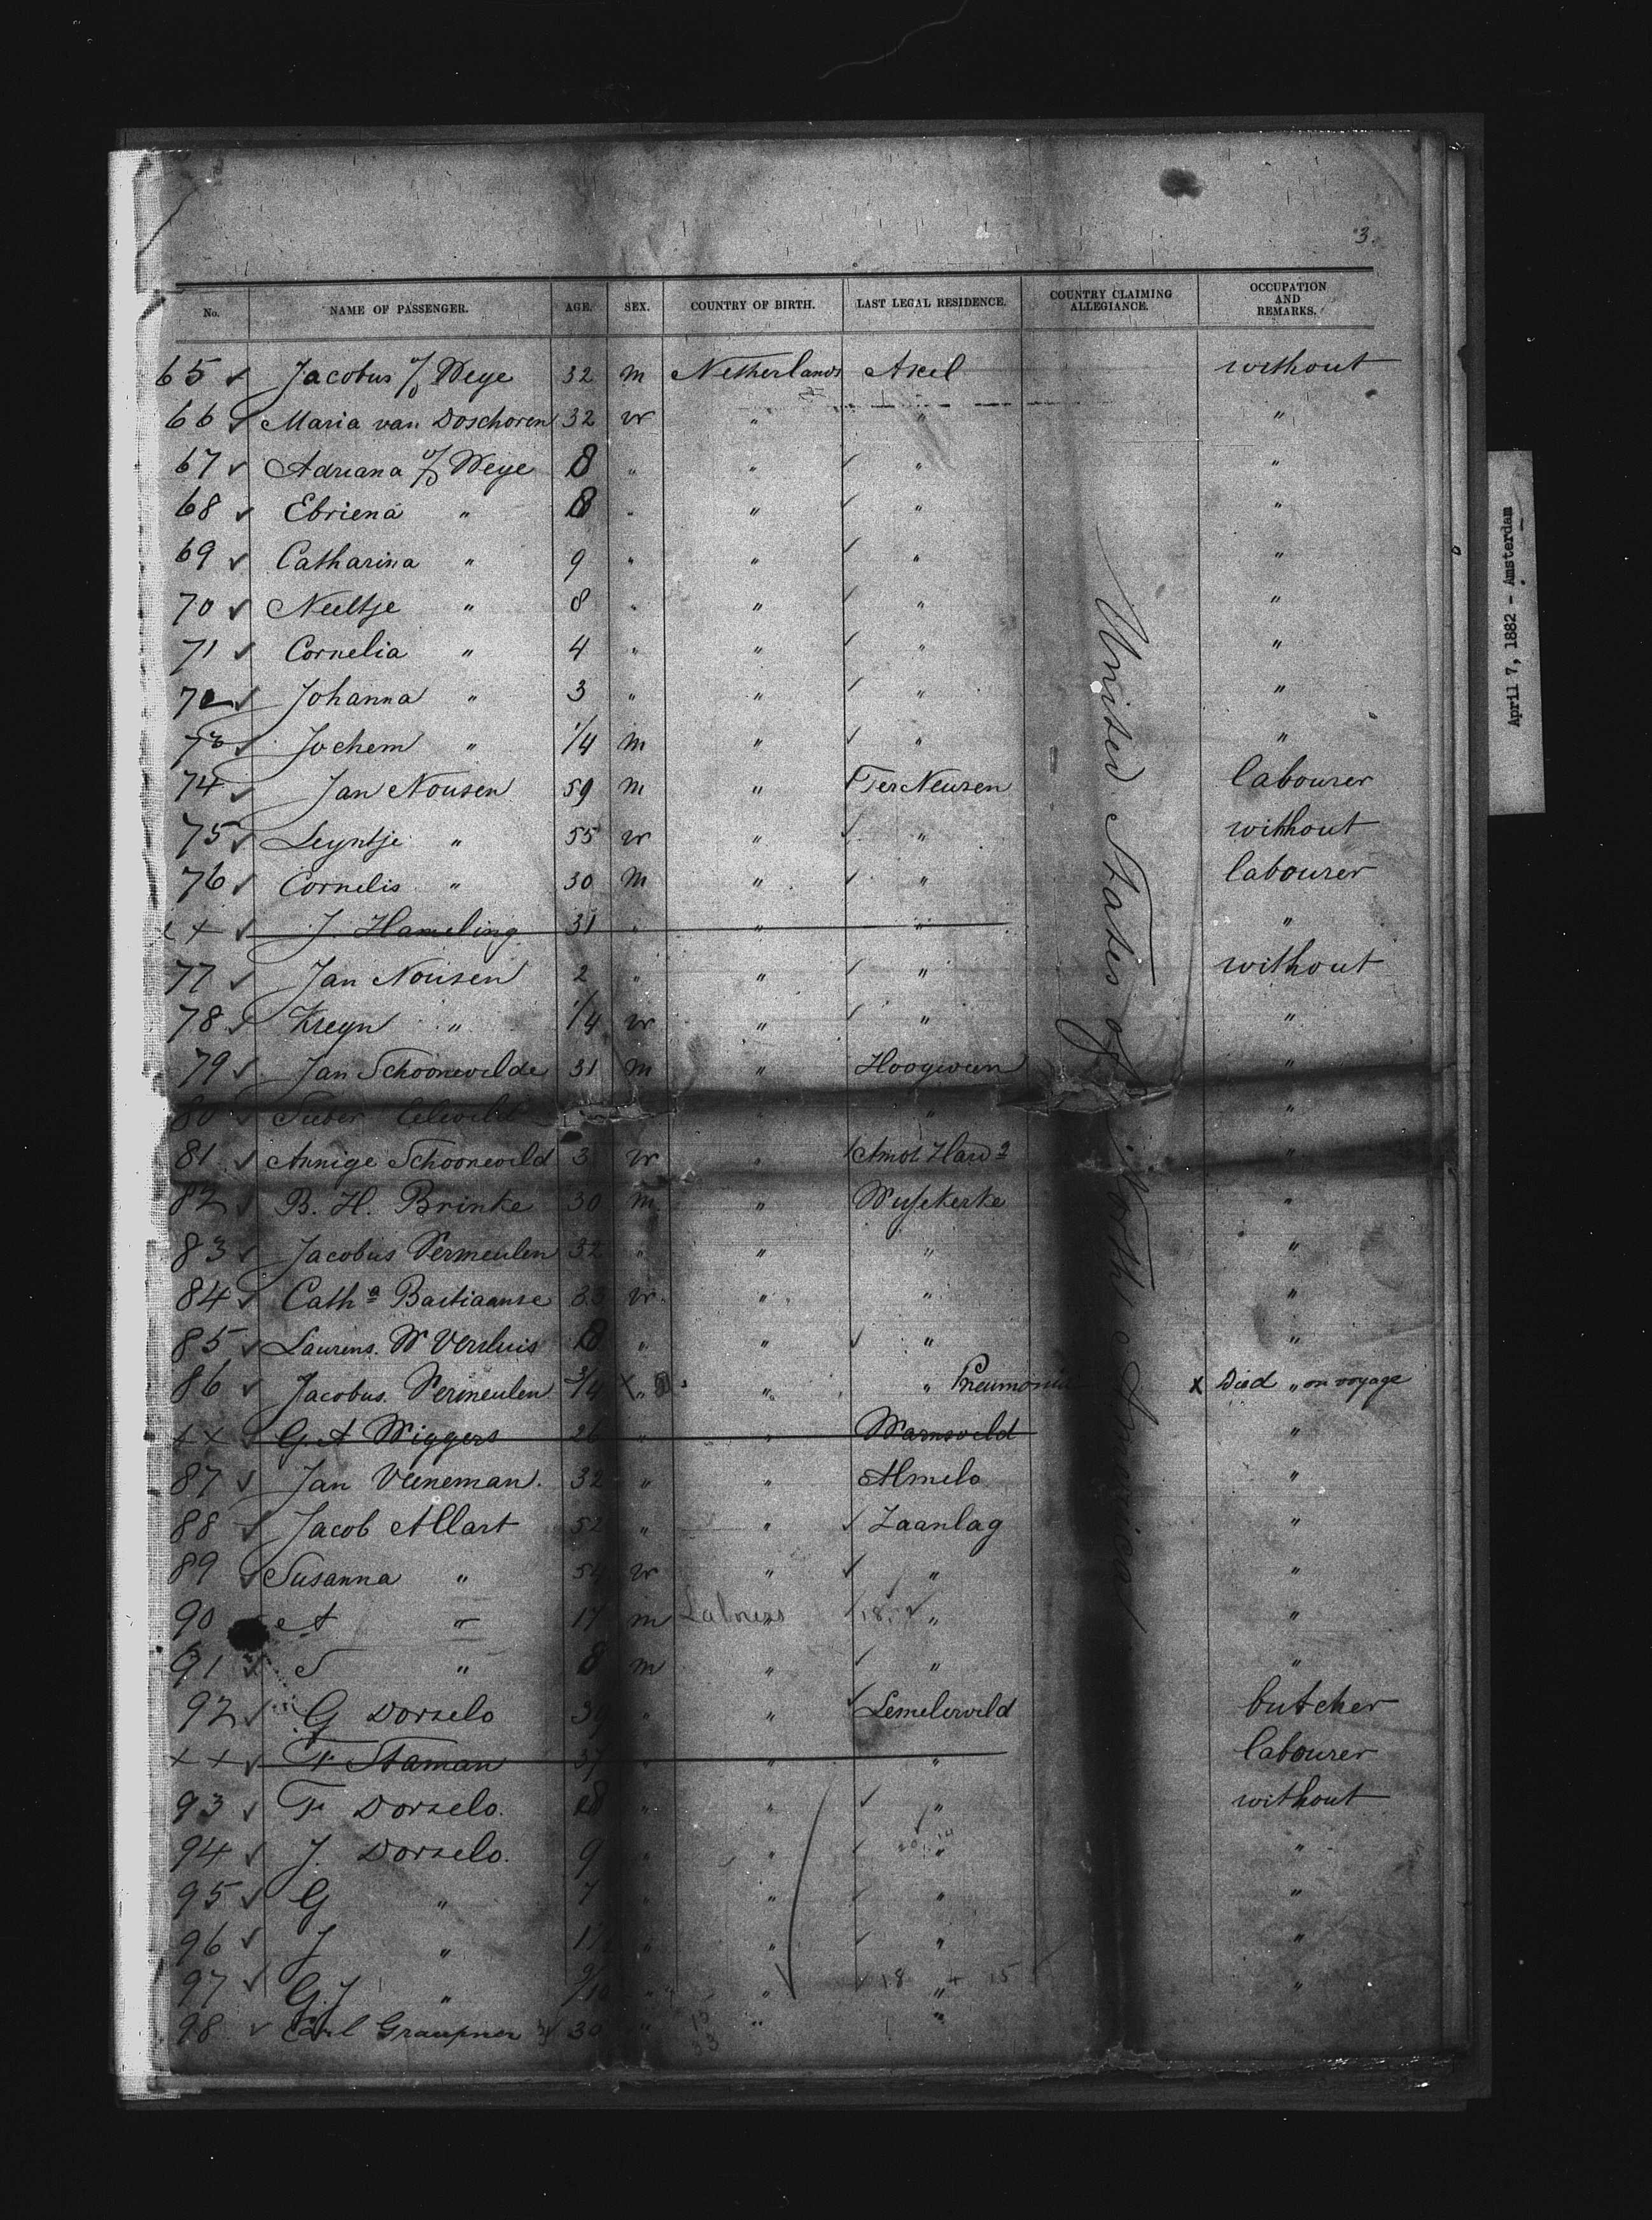 3.
No. NAME OF PASSENGER. AGE. SEX. COUNTRY OF BIRTH. LAST LEGAL RESIDENCE. COUNTRY CLAIMING ALLEGIANCE. OCCUPATION AND REMARKS.
65 ✓ Jacobus v/d Weye 32 m Netherlands Axel without
66 ✓ Maria van Doschoren 32 w " " "
67 ✓ Adriana v/d Weye 8 " " ✓ " "
68 ✓ Ebriena " 8 " " ✓ " "
69 ✓ Catharina " 9 " " ✓ " "
70 ✓ Neeltje " 8 " " ✓ " "
71 ✓ Cornelia " 4 " " ✓ " "
72 ✓ Johanna " 3 " " ✓ " "
73 ✓ Jochem " 1/4 m " ✓ " "
74 ✓ Jan Nousen 59 m " Ter Neuzen labourer
75 ✓ Leyntje " 55 w " ✓ " without
76 ✓ Cornelis " 30 m " ✓ " labourer
x ✓ J. Hameling 31 " " " "
77 ✓ Jan Nousen 2 " " ✓ " without
78 ✓ Kreyn " 1/4 w " ✓ " "
79 ✓ Jan Schoonevelde 31 m " Hoogwoen "
80 ✓ " " "
81 ✓ Annige Schooneveld 3 w " "
82 ✓ B. H. Brinke 30 m " "
83 ✓ Jacobus Vermeulen 32 " " " "
84 ✓ Cath a Bastiaanse 33 w " " "
85 ✓ Laurens. W Versluis " " ✓ " "
86 ✓ Jacobus. Vermeulen 3/4 x " " " Pneumonia x Died " on voyage
x x G A Wiggers 26 " " Warnsveld "
87 ✓ Jan Veeneman. 32 " " Almelo "
88 ✓ Jacob Allart 52 " " ✓ Zaanlag "
89 ✓ Susanna " 54 w " ✓ " "
90 A " 17 m Labourer " ✓ 18. " "
91 ✓ S " 8 m " ✓ " "
92 ✓ G Dorselo 39 " " ✓ Lemelerveld butcher
x x ✓ F Staman 37 " " " labourer
93 ✓ F Dorselo. " " ✓ " without
94 ✓ J. Dorselo. 9 " " ✓ " "
95 ✓ G " 7 " " ✓ " "
96 ✓ J " " " ✓ " "
97 ✓ G. J " 9/10 " " ✓ 18 " + 15 "
98 ✓ Carl Graupner 30 " " "
United States of North America
April 7, 1882 - Amsterdam